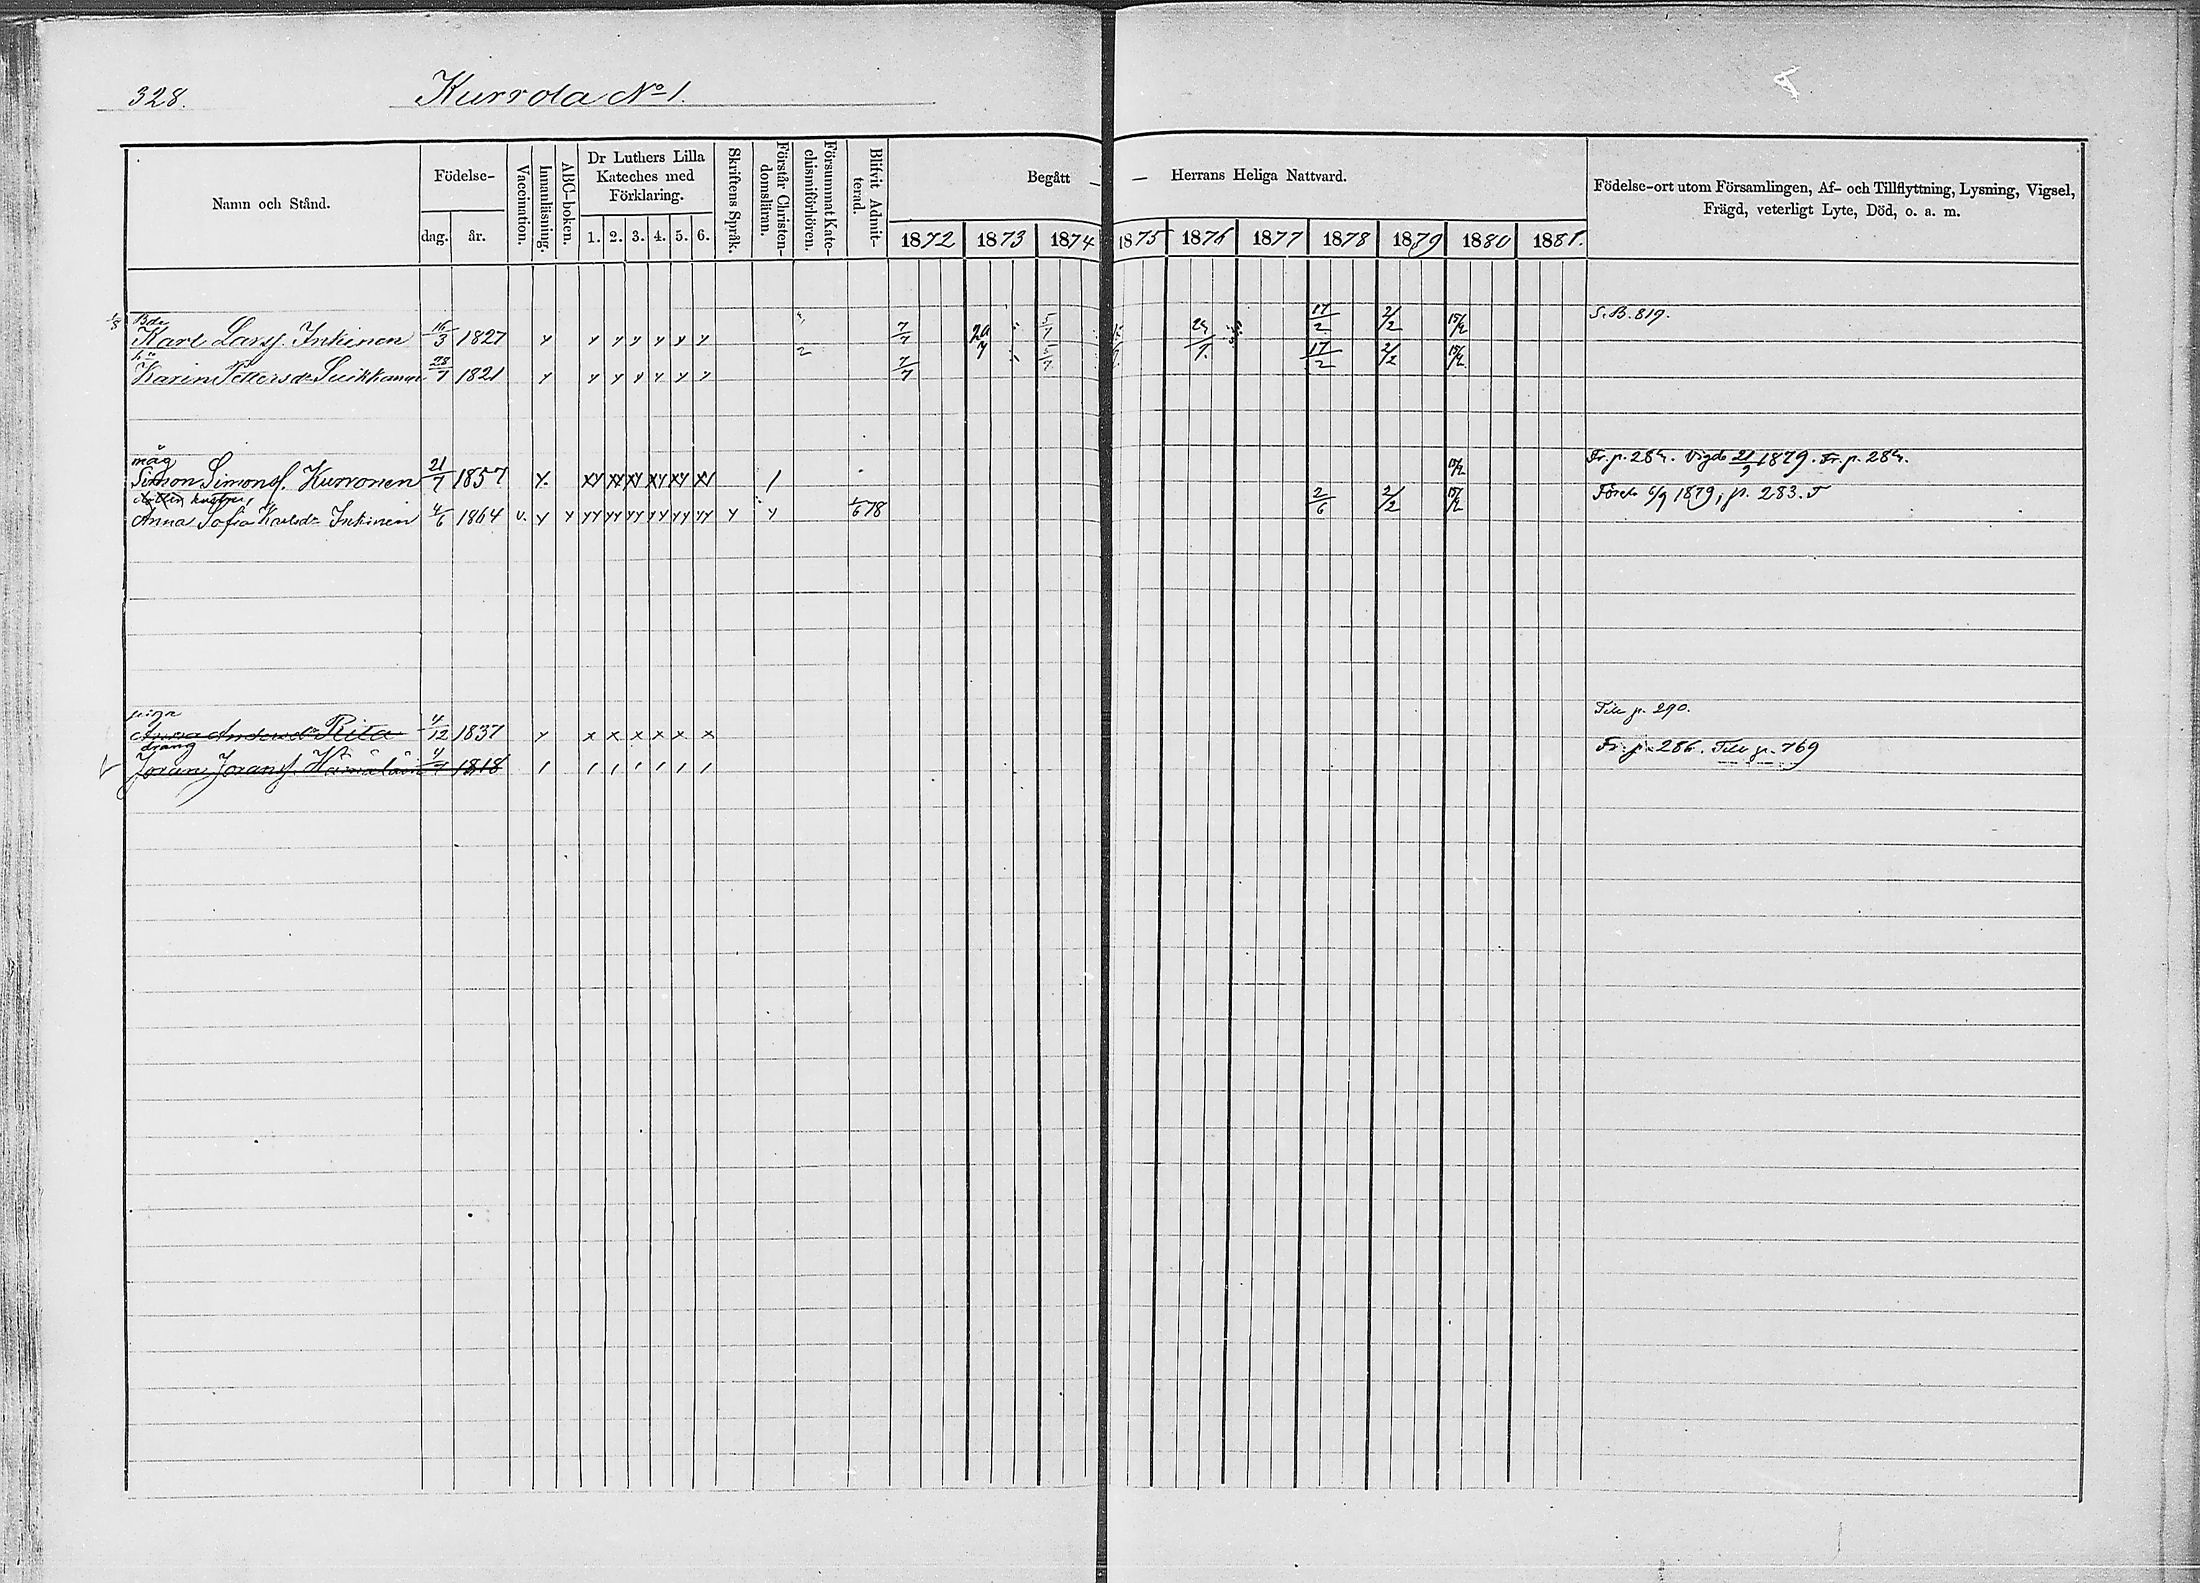 328. Kurrola No 1.
Namn och Stånd. Födelse- dag. år. Vaccination. Innanläsning. ABC-boken. Dr Luthers Lilla Kateches med Förklaring. 1. 2. 3. 4. 5. 6. Skriftens Språk. Förstår Christendomsläran. Försummat Katechismiförhören. Blifvit Admitterad. Begått — — Herrans Heliga Nattvard. 1872 1873 1874 1875 1876 1877 1878 1879 1880 1881. Födelse-ort utom Församlingen, Af- och Tillflyttning, Lysning, Vigsel, Frägd, veterligt Lyte, Död, o. a. m.
Bde
Karl Larsf. Inkinen 16/3 1827 y y y y y y y 7/7 17/2 2/2 15/2 S.B. 819.
Karin Pettersdr 28/7 1821 y y y y y y y 2 7/7 17/2 2/2 15/2
måg
Simon Simonsf. Kurronen 21/7 1857 xy xy xy xy xy xy 1 15/2 Fr. p. 284. Vigde 21/9 1879. Fr. p. 284.
Anna Sofia Karlsdr Inkinen 4/6 1864 v. y y yy yy yy yy yy yy y y 2/6 2/2 15/2 6/9 1879, p. 283.
piga
Anna Andersdr Rita 4/12 1837 x x x x x x Till p. 290.
dräng
Joran Joransf. 1818 1 1 1 1 1 1 1 Fr. p. 286. Till p. 769